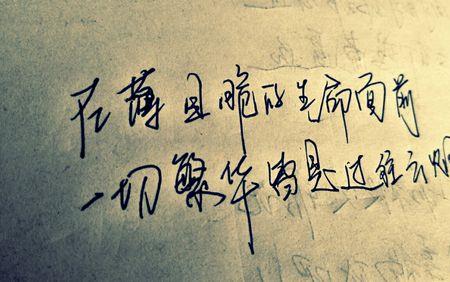 在薄且脆的生命面前
一切繁华皆是过往云烟